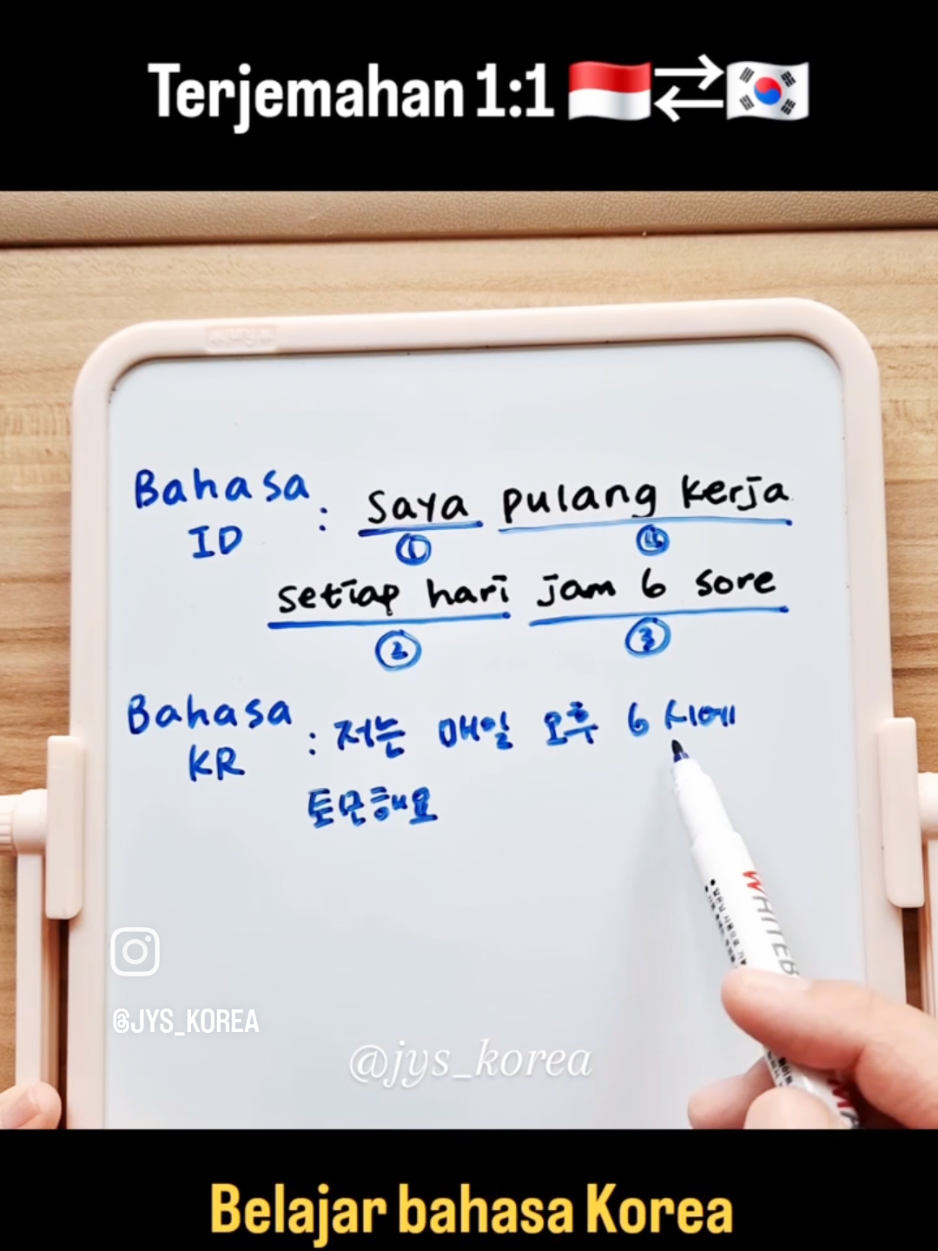 Terjemahan 1:1
Bahasa ID : Saya pulang kerja
① ④
setiap hari jam 6 sore
② ③
Bahasa KR : 저는 매일 오후 6시에
퇴근해요
WHITEB
@JYS_KOREA
@jys_korea
Belajar bahasa Korea